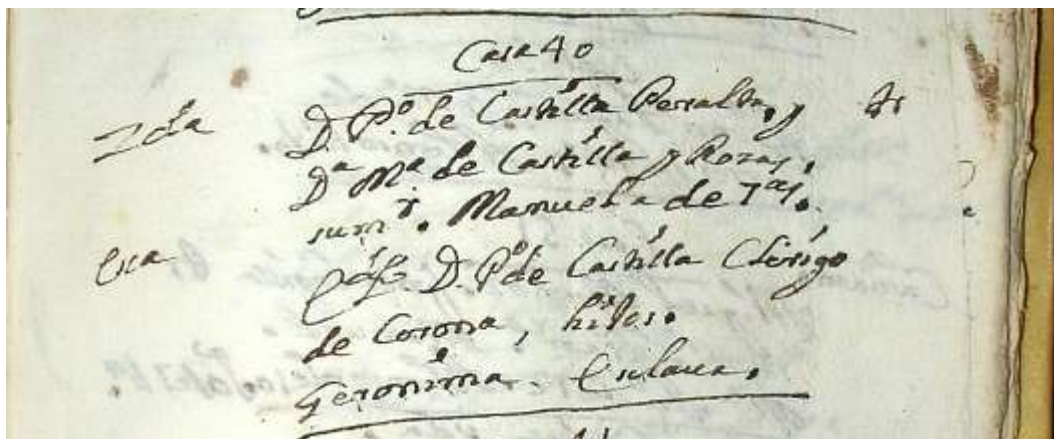 Casa 40
D. P.º de Castilla Peralta, y
Dª Mª de Castilla y Rozas,
su mr. Manuela de 7 aˢ.
D. P.º de Castilla Clerigo
de Corona, hijos.
Geronima. Esclava.